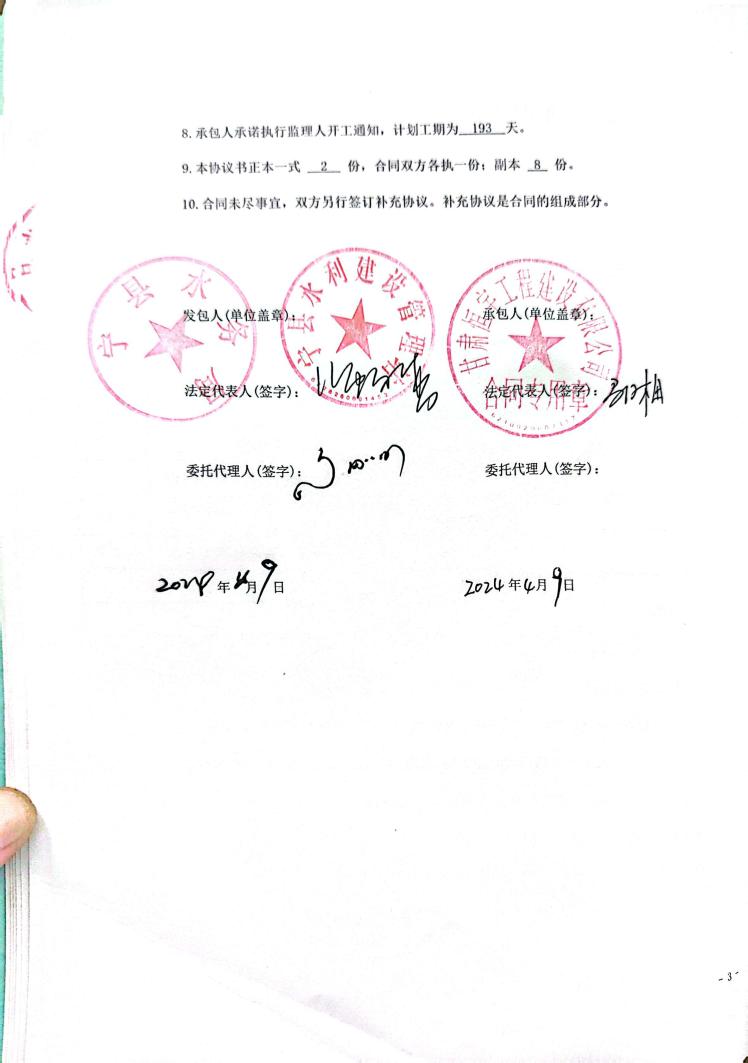 8. 承包人承诺执行监理人开工通知，计划工期为 193 天。
9. 本协议书正本一式 2 份，合同双方各执一份；副本 8 份。
10. 合同未尽事宜，双方另行签订补充协议。补充协议是合同的组成部分。
宁县水务局
宁县水利建设管理
工程建设有限公司
合同专用章
发包人(单位盖章)：
承包人(单位盖章)：
法定代表人(签字)：
法定代表人(签字)：
委托代理人(签字)：
委托代理人(签字)：
2024年4月9日
2024年4月9日
- 3 -